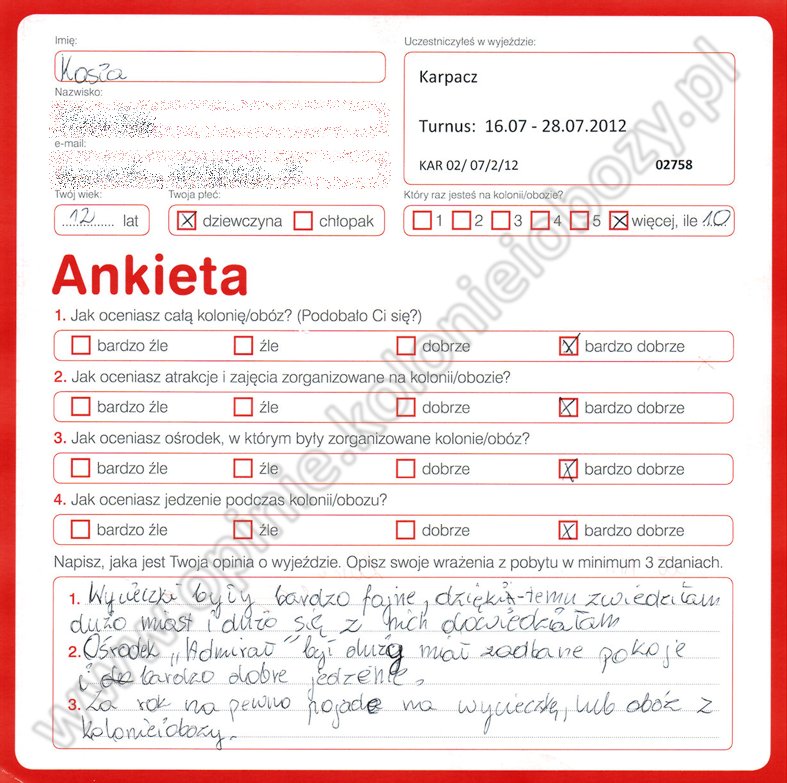 Imię:
Kasia
Nazwisko:
e-mail:
Twój wiek:
12 lat
Twoja płeć:
dziewczyna chłopak
Uczestniczyłeś w wyjeździe:
Karpacz
Turnus: 16.07 - 28.07.2012
KAR 02/ 07/2/12 02758
Który raz jesteś na kolonii/obozie?
1 2 3 4 5 więcej, ile 10
Ankieta
1. Jak oceniasz całą kolonię/obóz? (Podobało Ci się?)
bardzo źle źle dobrze bardzo dobrze
2. Jak oceniasz atrakcje i zajęcia zorganizowane na kolonii/obozie?
bardzo źle źle dobrze bardzo dobrze
3. Jak oceniasz ośrodek, w którym były zorganizowane kolonie/obóz?
bardzo źle źle dobrze bardzo dobrze
4. Jak oceniasz jedzenie podczas kolonii/obozu?
bardzo źle źle dobrze bardzo dobrze
Napisz, jaka jest Twoja opinia o wyjeździe. Opisz swoje wrażenia z pobytu w minimum 3 zdaniach.
1. Wycieczki były bardzo fajne, dzięki temu zwiedziłam
dużo miast i dużo się z nich dowiedziałam
2. Ośrodek „Admirał" był duży miał zadbane pokoje
i bardzo dobre jedzenie.
3. Za rok na pewno pojadę na wycieczkę, lub obóz z
kolonieiobozy.
www.opinie.kolonieiobozy.pl